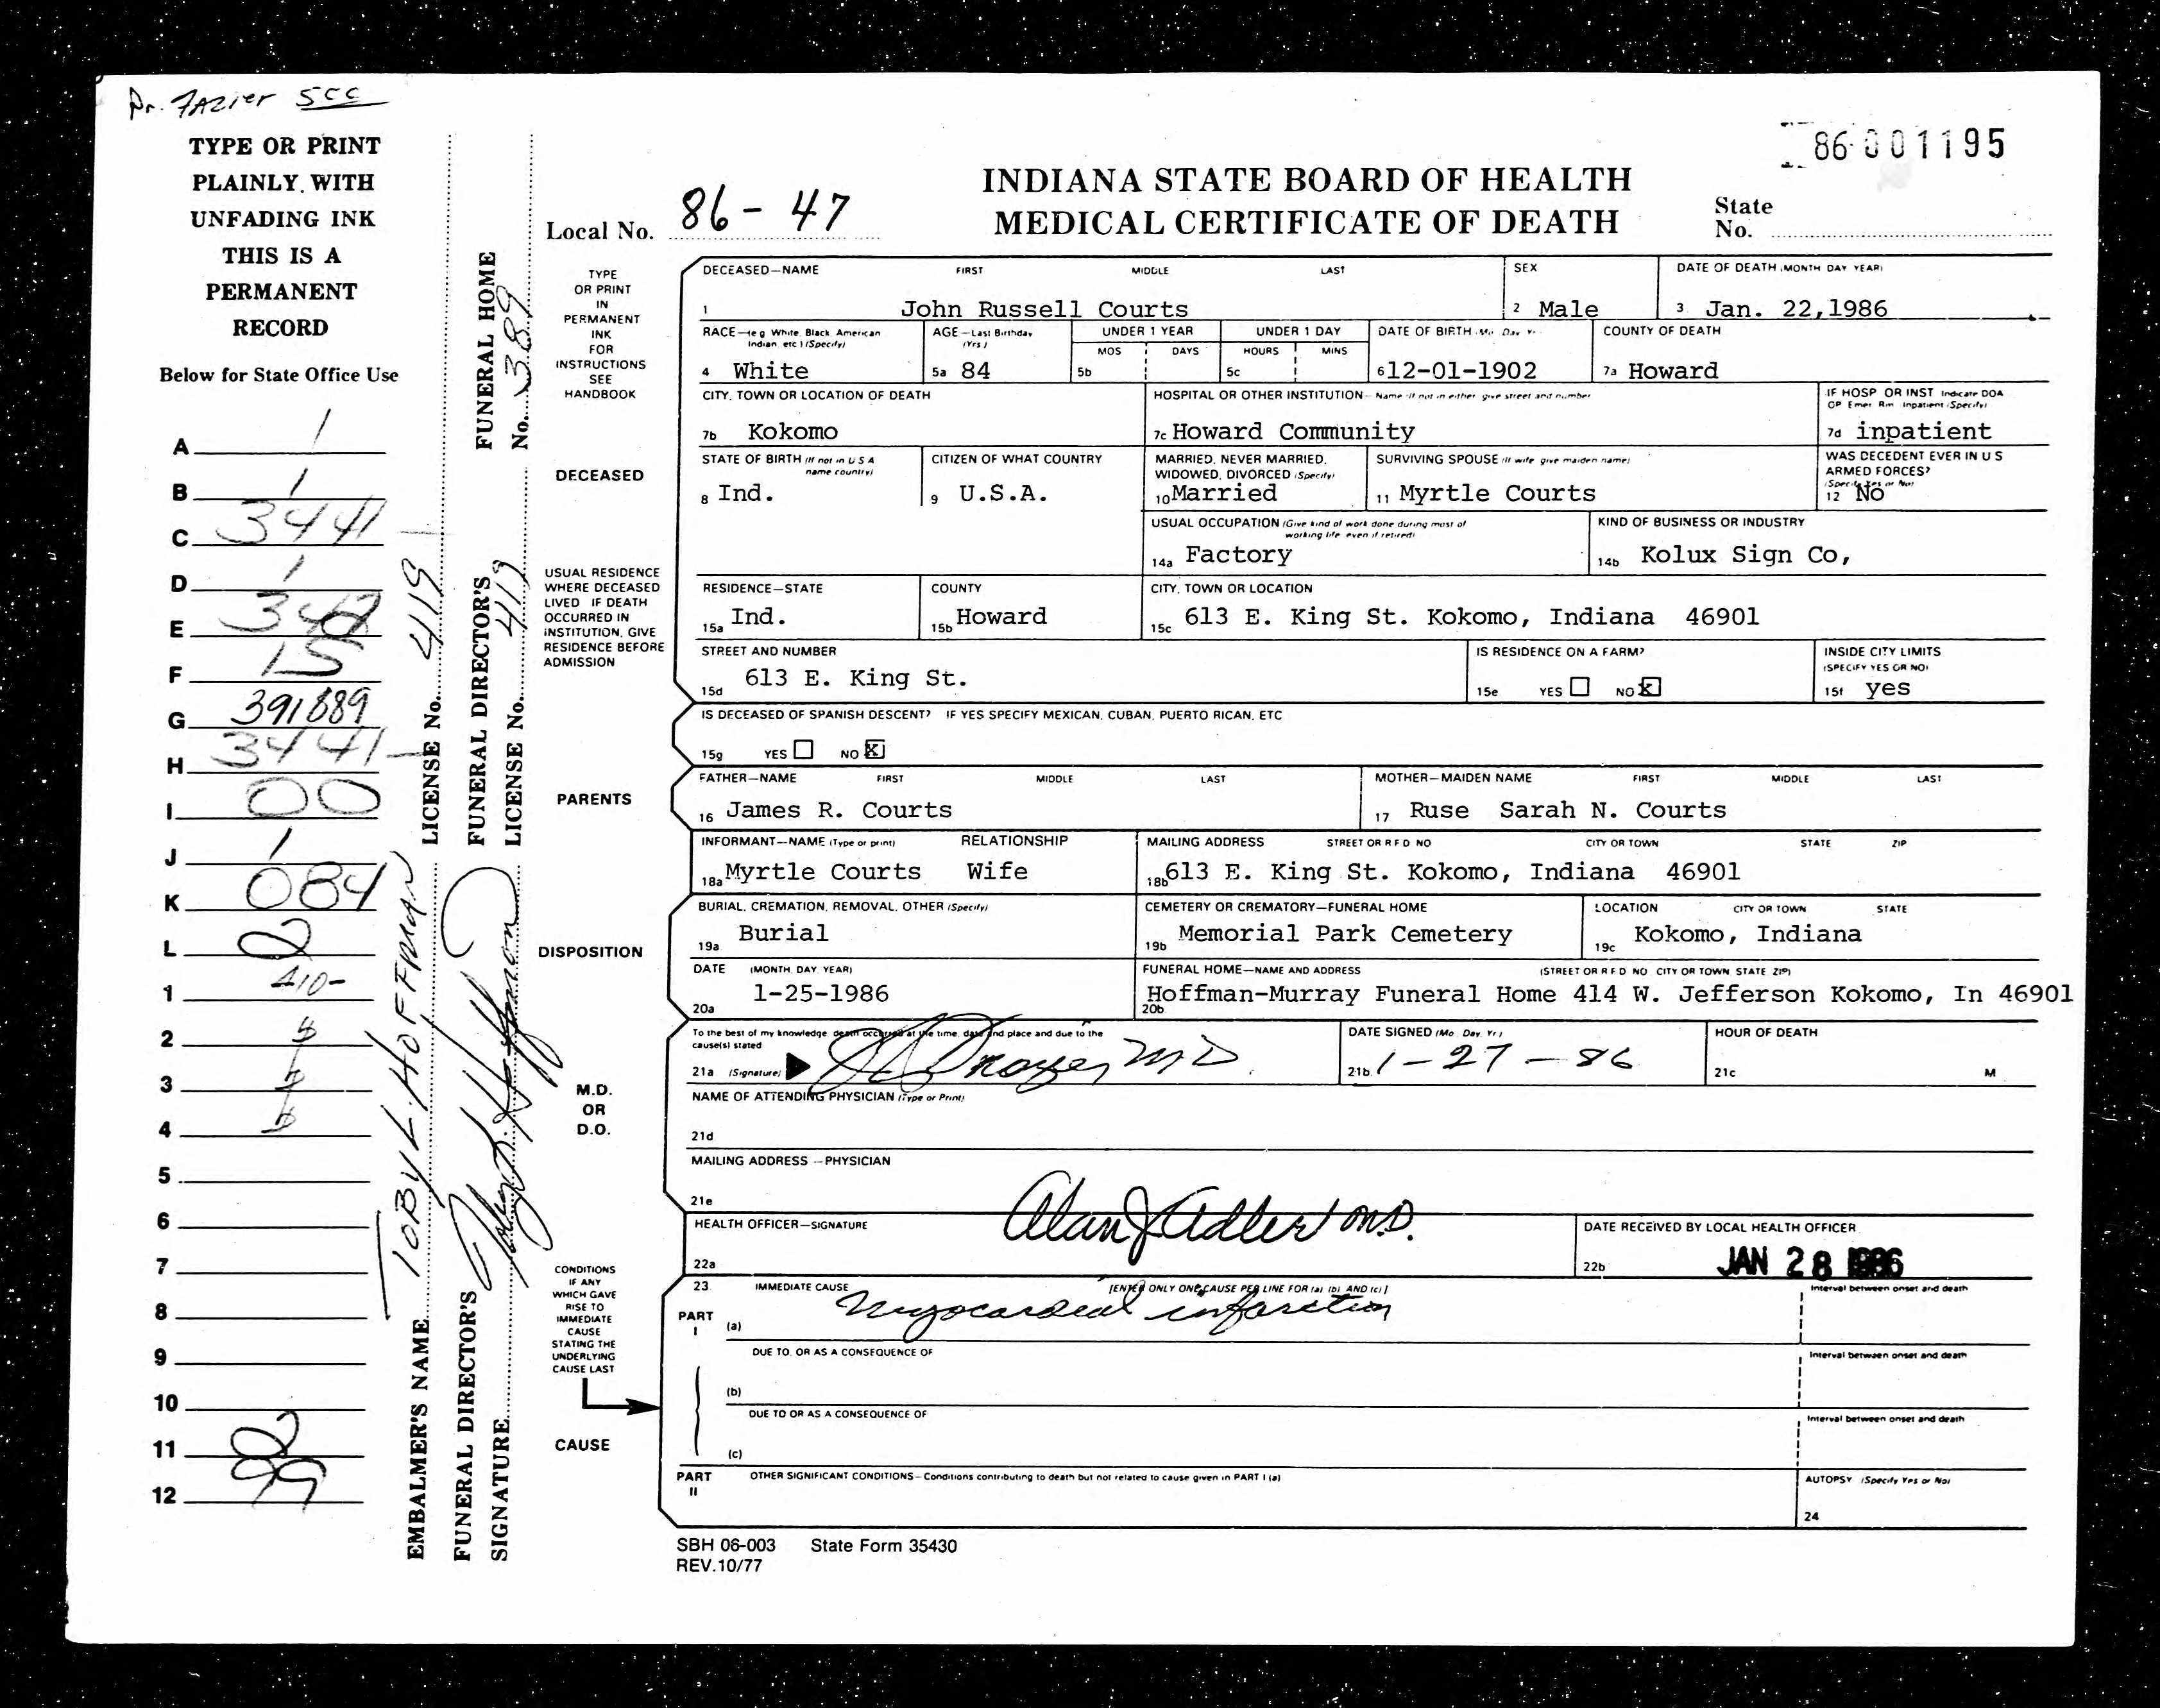 Dr. Fazier 5cc
TYPE OR PRINT
PLAINLY, WITH
UNFADING INK
THIS IS A
PERMANENT
RECORD
Below for State Office Use
A 1
B 1
C 3441
D 1
E
F 15
G 391889
H 3441-
I 00
J 1
K 084
L 2
1 410-
2
3
4
5
6
7
8
9
10
11 2
12 99
EMBALMER'S NAME TOBY L. HOFFMAN LICENSE No. 419
FUNERAL DIRECTOR'S SIGNATURE Toby L. Hoffman
FUNERAL DIRECTOR'S LICENSE No. 419
FUNERAL HOME No. 389
86-001195
INDIANA STATE BOARD OF HEALTH
MEDICAL CERTIFICATE OF DEATH
Local No. 86-47
State
No.
TYPE
OR PRINT
IN
PERMANENT
INK
FOR
INSTRUCTIONS
SEE
HANDBOOK
DECEASED
DECEASED—NAME FIRST MIDDLE LAST
1 John Russell Courts
SEX
2 Male
DATE OF DEATH (MONTH DAY YEAR)
3 Jan. 22,1986
RACE—(e g White, Black, American
Indian, etc ) (Specify)
4 White
AGE—Last Birthday
(Yrs )
5a 84
UNDER 1 YEAR
MOS DAYS
5b
UNDER 1 DAY
HOURS MINS
5c
DATE OF BIRTH (Mo Day Yr
6 12-01-1902
COUNTY OF DEATH
7a Howard
CITY, TOWN OR LOCATION OF DEATH
7b Kokomo
HOSPITAL OR OTHER INSTITUTION— Name (If not in either give street and number
7c Howard Community
IF HOSP OR INST Indicate DOA
OP Emer Rm Inpatient (Specify)
7d inpatient
STATE OF BIRTH (If not in U S A
name country)
8 Ind.
CITIZEN OF WHAT COUNTRY
9 U.S.A.
MARRIED, NEVER MARRIED,
WIDOWED, DIVORCED (Specify)
10 Married
SURVIVING SPOUSE (If wife give maiden name)
11 Myrtle Courts
WAS DECEDENT EVER IN U S
ARMED FORCES?
(Specify Yes or No)
12 No
USUAL OCCUPATION (Give kind of work done during most of
working life even if retired)
14a Factory
KIND OF BUSINESS OR INDUSTRY
14b Kolux Sign Co,
USUAL RESIDENCE
WHERE DECEASED
LIVED IF DEATH
OCCURRED IN
INSTITUTION, GIVE
RESIDENCE BEFORE
ADMISSION
RESIDENCE—STATE
15a Ind.
COUNTY
15b Howard
CITY, TOWN OR LOCATION
15c 613 E. King St. Kokomo, Indiana 46901
STREET AND NUMBER
15d 613 E. King St.
IS RESIDENCE ON A FARM?
15e YES NO X
INSIDE CITY LIMITS
(SPECIFY YES OR NO)
15f yes
IS DECEASED OF SPANISH DESCENT? IF YES SPECIFY MEXICAN, CUBAN, PUERTO RICAN, ETC
15g YES NO X
PARENTS
FATHER—NAME FIRST MIDDLE LAST
16 James R. Courts
MOTHER—MAIDEN NAME FIRST MIDDLE LAST
17 Ruse Sarah N. Courts
INFORMANT—NAME (Type or print) RELATIONSHIP
18a Myrtle Courts Wife
MAILING ADDRESS STREET OR R F D NO CITY OR TOWN STATE ZIP
18b 613 E. King St. Kokomo, Indiana 46901
DISPOSITION
BURIAL, CREMATION, REMOVAL, OTHER (Specify)
19a Burial
CEMETERY OR CREMATORY—FUNERAL HOME
19b Memorial Park Cemetery
LOCATION CITY OR TOWN STATE
19c Kokomo, Indiana
DATE (MONTH, DAY, YEAR)
20a 1-25-1986
FUNERAL HOME—NAME AND ADDRESS (STREET OR R F D NO CITY OR TOWN STATE ZIP)
20b Hoffman-Murray Funeral Home 414 W. Jefferson Kokomo, In 46901
M.D.
OR
D.O.
To the best of my knowledge death occurred at the time, date and place and due to the
cause(s) stated
21a (Signature) MD
DATE SIGNED (Mo Day, Yr)
21b 1-27-86
HOUR OF DEATH
21c M
NAME OF ATTENDING PHYSICIAN (Type or Print)
21d
MAILING ADDRESS—PHYSICIAN
21e
HEALTH OFFICER—SIGNATURE
22a Alan J Adler M.D.
DATE RECEIVED BY LOCAL HEALTH OFFICER
22b JAN 28 1986
CONDITIONS
IF ANY
WHICH GAVE
RISE TO
IMMEDIATE
CAUSE
STATING THE
UNDERLYING
CAUSE LAST
CAUSE
23 IMMEDIATE CAUSE [ENTER ONLY ONE CAUSE PER LINE FOR (a), (b), AND (c)]
PART
I
(a) Myocardial infarction
Interval between onset and death
DUE TO, OR AS A CONSEQUENCE OF
(b)
Interval between onset and death
DUE TO OR AS A CONSEQUENCE OF
(c)
Interval between onset and death
PART
II
OTHER SIGNIFICANT CONDITIONS—Conditions contributing to death but not related to cause given in PART I (a)
AUTOPSY (Specify Yes or No)
24
SBH 06-003 State Form 35430
REV.10/77